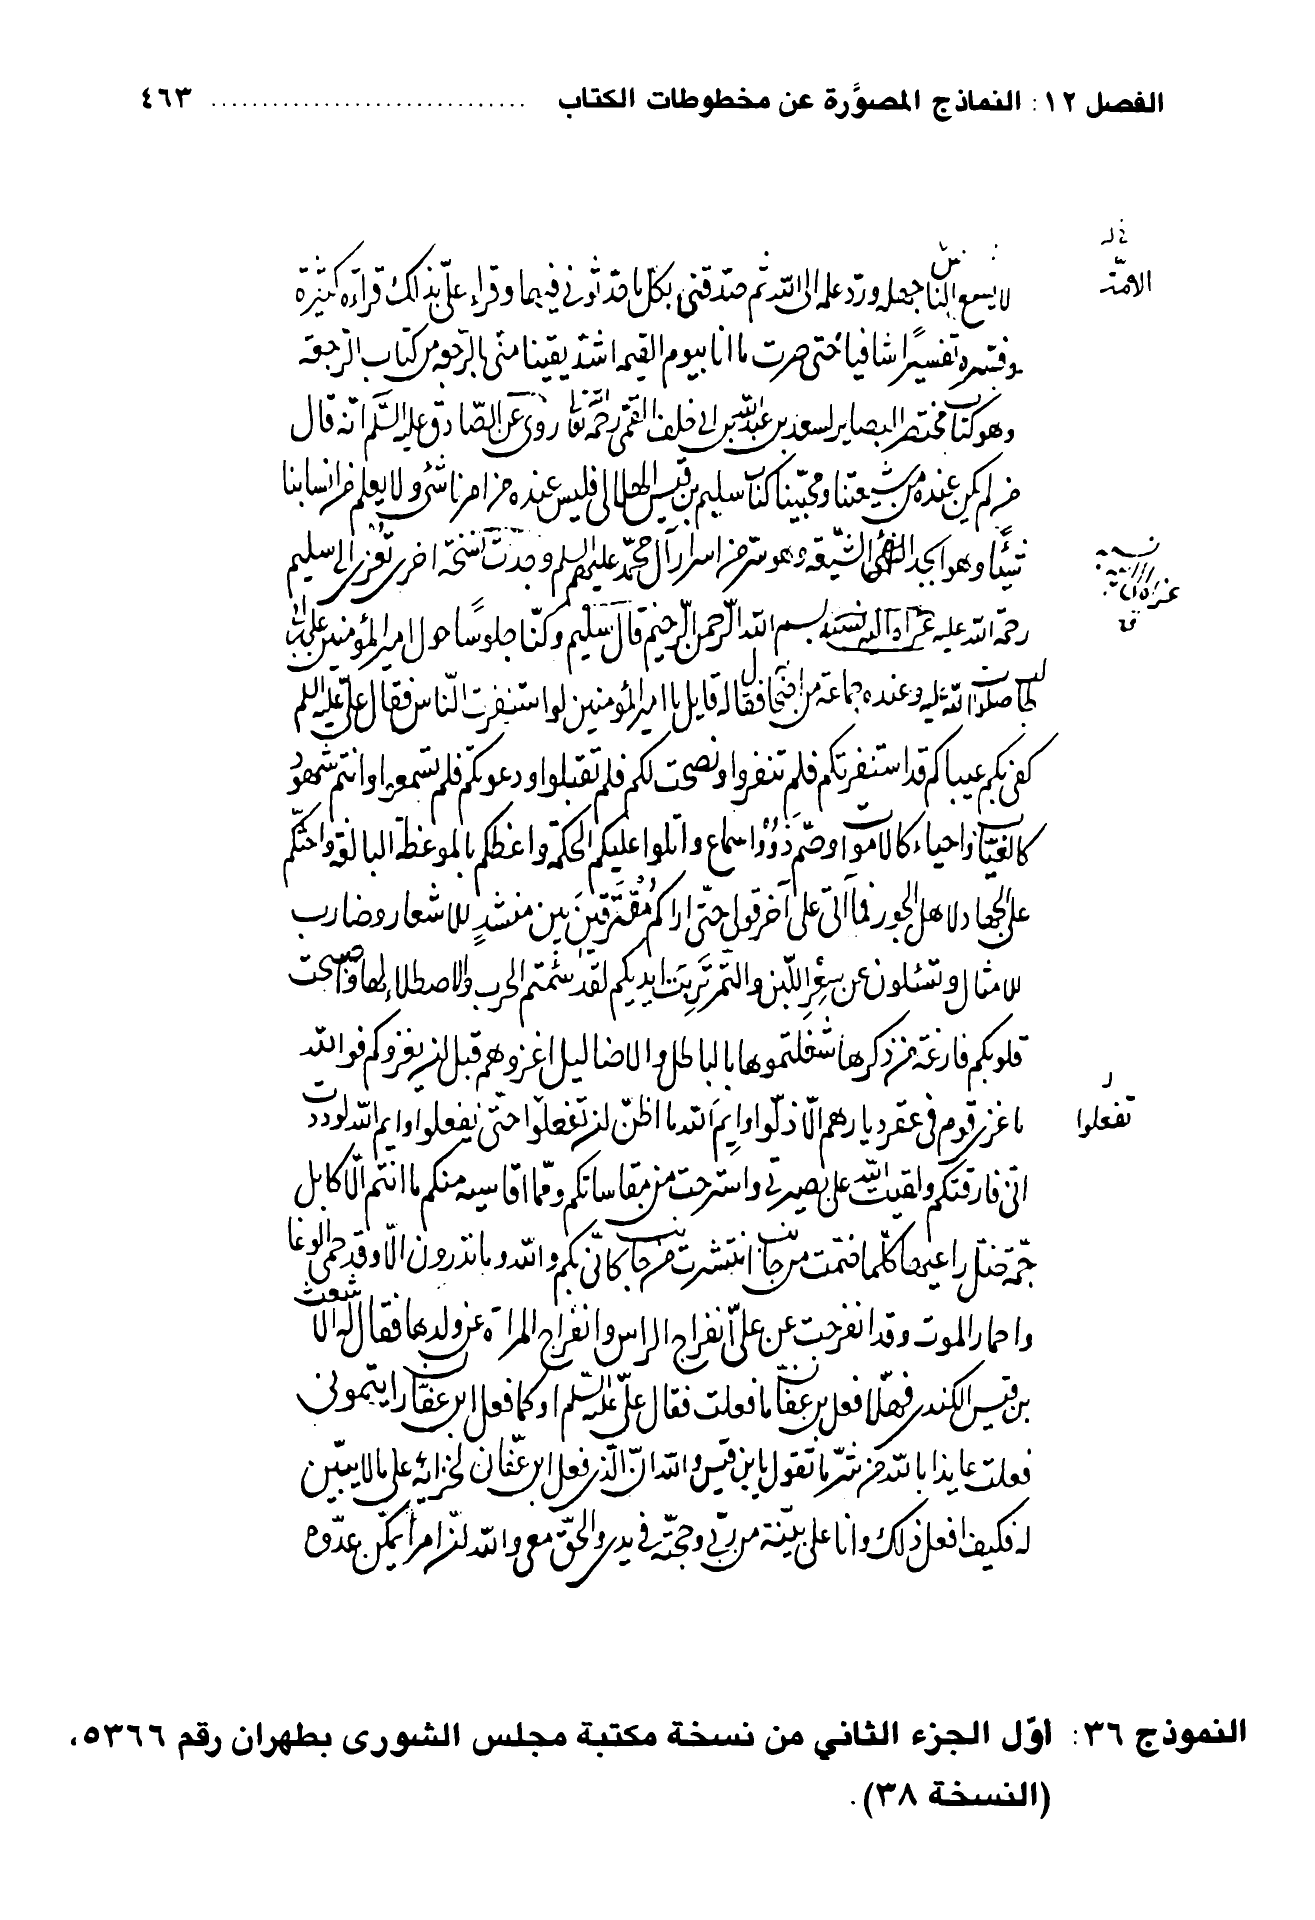 الفصل ١٢: النماذج المصوَّرة عن مخطوطات الكتاب ٤٦٣
لا يسع الناس جهله ورد علمه الى الله ثم صدقنى بكل ما حدثونى فيها وقراء على بذلك قراءه كثيرة
الامة
وفسره تفسيرًا شافيا حتى صرت ما انا بيوم القيمه اشد يقينا منى بالرجعه من كتاب الرجعة
وهو كتاب مختصر البصاير لسعد بن عبد الله بن ابى خلف القمى رحمه الله تعالى روى عن الصادق عليه السلم انه قال
من لم يكن عنده من شيعتنا ومحبينا كتاب سليم بن قيس الهلالى فليس عنده من امرنا شئ ولا يعلم من اسبابنا
شيئا وهو ابجد الشيعه وهو سر من اسرار آل محمد عليهم السلم وجدت نسخة اخرى تعزى الى سليم
رحمة الله عليه بسم الله الرحمن الرحيم قال سليم وكنا جلوسًا حول امير المؤمنين على بن ابى
طالب صلوات الله عليه وعنده جماعة من اصحابه فقال له قايل يا امير المؤمنين لو استنفرت الناس فقال على عليه السلم
كفى بكم عيبا كم قد استنفرتكم فلم تنفروا ونصحت لكم فلم تقبلوا ودعوتكم فلم تسمعوا وانتم شهود
كالغياب واحياء كالاموات وصم ذوو اسماع واتلوا عليكم الحكمة واعظكم بالموعظة البالغة واحثكم
على الجهاد لاهل الجور فما آتى على آخر قولى حتى اراكم مُتفرقين بين منشدٍ للاشعار وضارب
للامثال وتسئلون عن سِعْرِ اللبن والتمر تَرِبَت ايديكم لقد سئمتم الحرب والاصطلاء لها واصبحت
قلوبكم فارغة من ذكرها شغلتموها بالباطل والاضاليل اغزوهم قبل ان يغزوكم فوالله
ما غزى قوم فى عقر ديارهم الّا ذلّوا وايم الله ما اظن ان تفعلوا حتى يفعلوا وايم الله لوددت
تفعلوا
انى فارقتكم ولقيت الله على بصيرتى واسترحت من مقاساتكم ومما اقاسيه منكم ما انتم الّا كابل
جمّة ضل راعيها كلما ضمت من جانب انتشرت من جانب كانى بكم والله وما تذرون الّا وقد حمى الوغا
واحمار الموت وقد انفرجت عن على انفراج الراس وانفراج المراة عن ولدها فقال له الاشعث
بن قيس الكندى فهلا فعل بن عفان ما فعلت فقال على عليه السلم او كما فعل ابن عفان رايتمونى
فعلت عايذا بالله من شر ما تقول يابن قيس والله ان الذى فعل ابن عفان لمخزاية على ما لا يبين
له فكيف افعل ذلك وانا على بينة من ربى وحجته فى يدى والحق معى والله ان امرأ يمكن عدوه
النموذج ٣٦: أوّل الجزء الثاني من نسخة مكتبة مجلس الشورى بطهران رقم ٥٣٦٦،
(النسخة ٣٨).